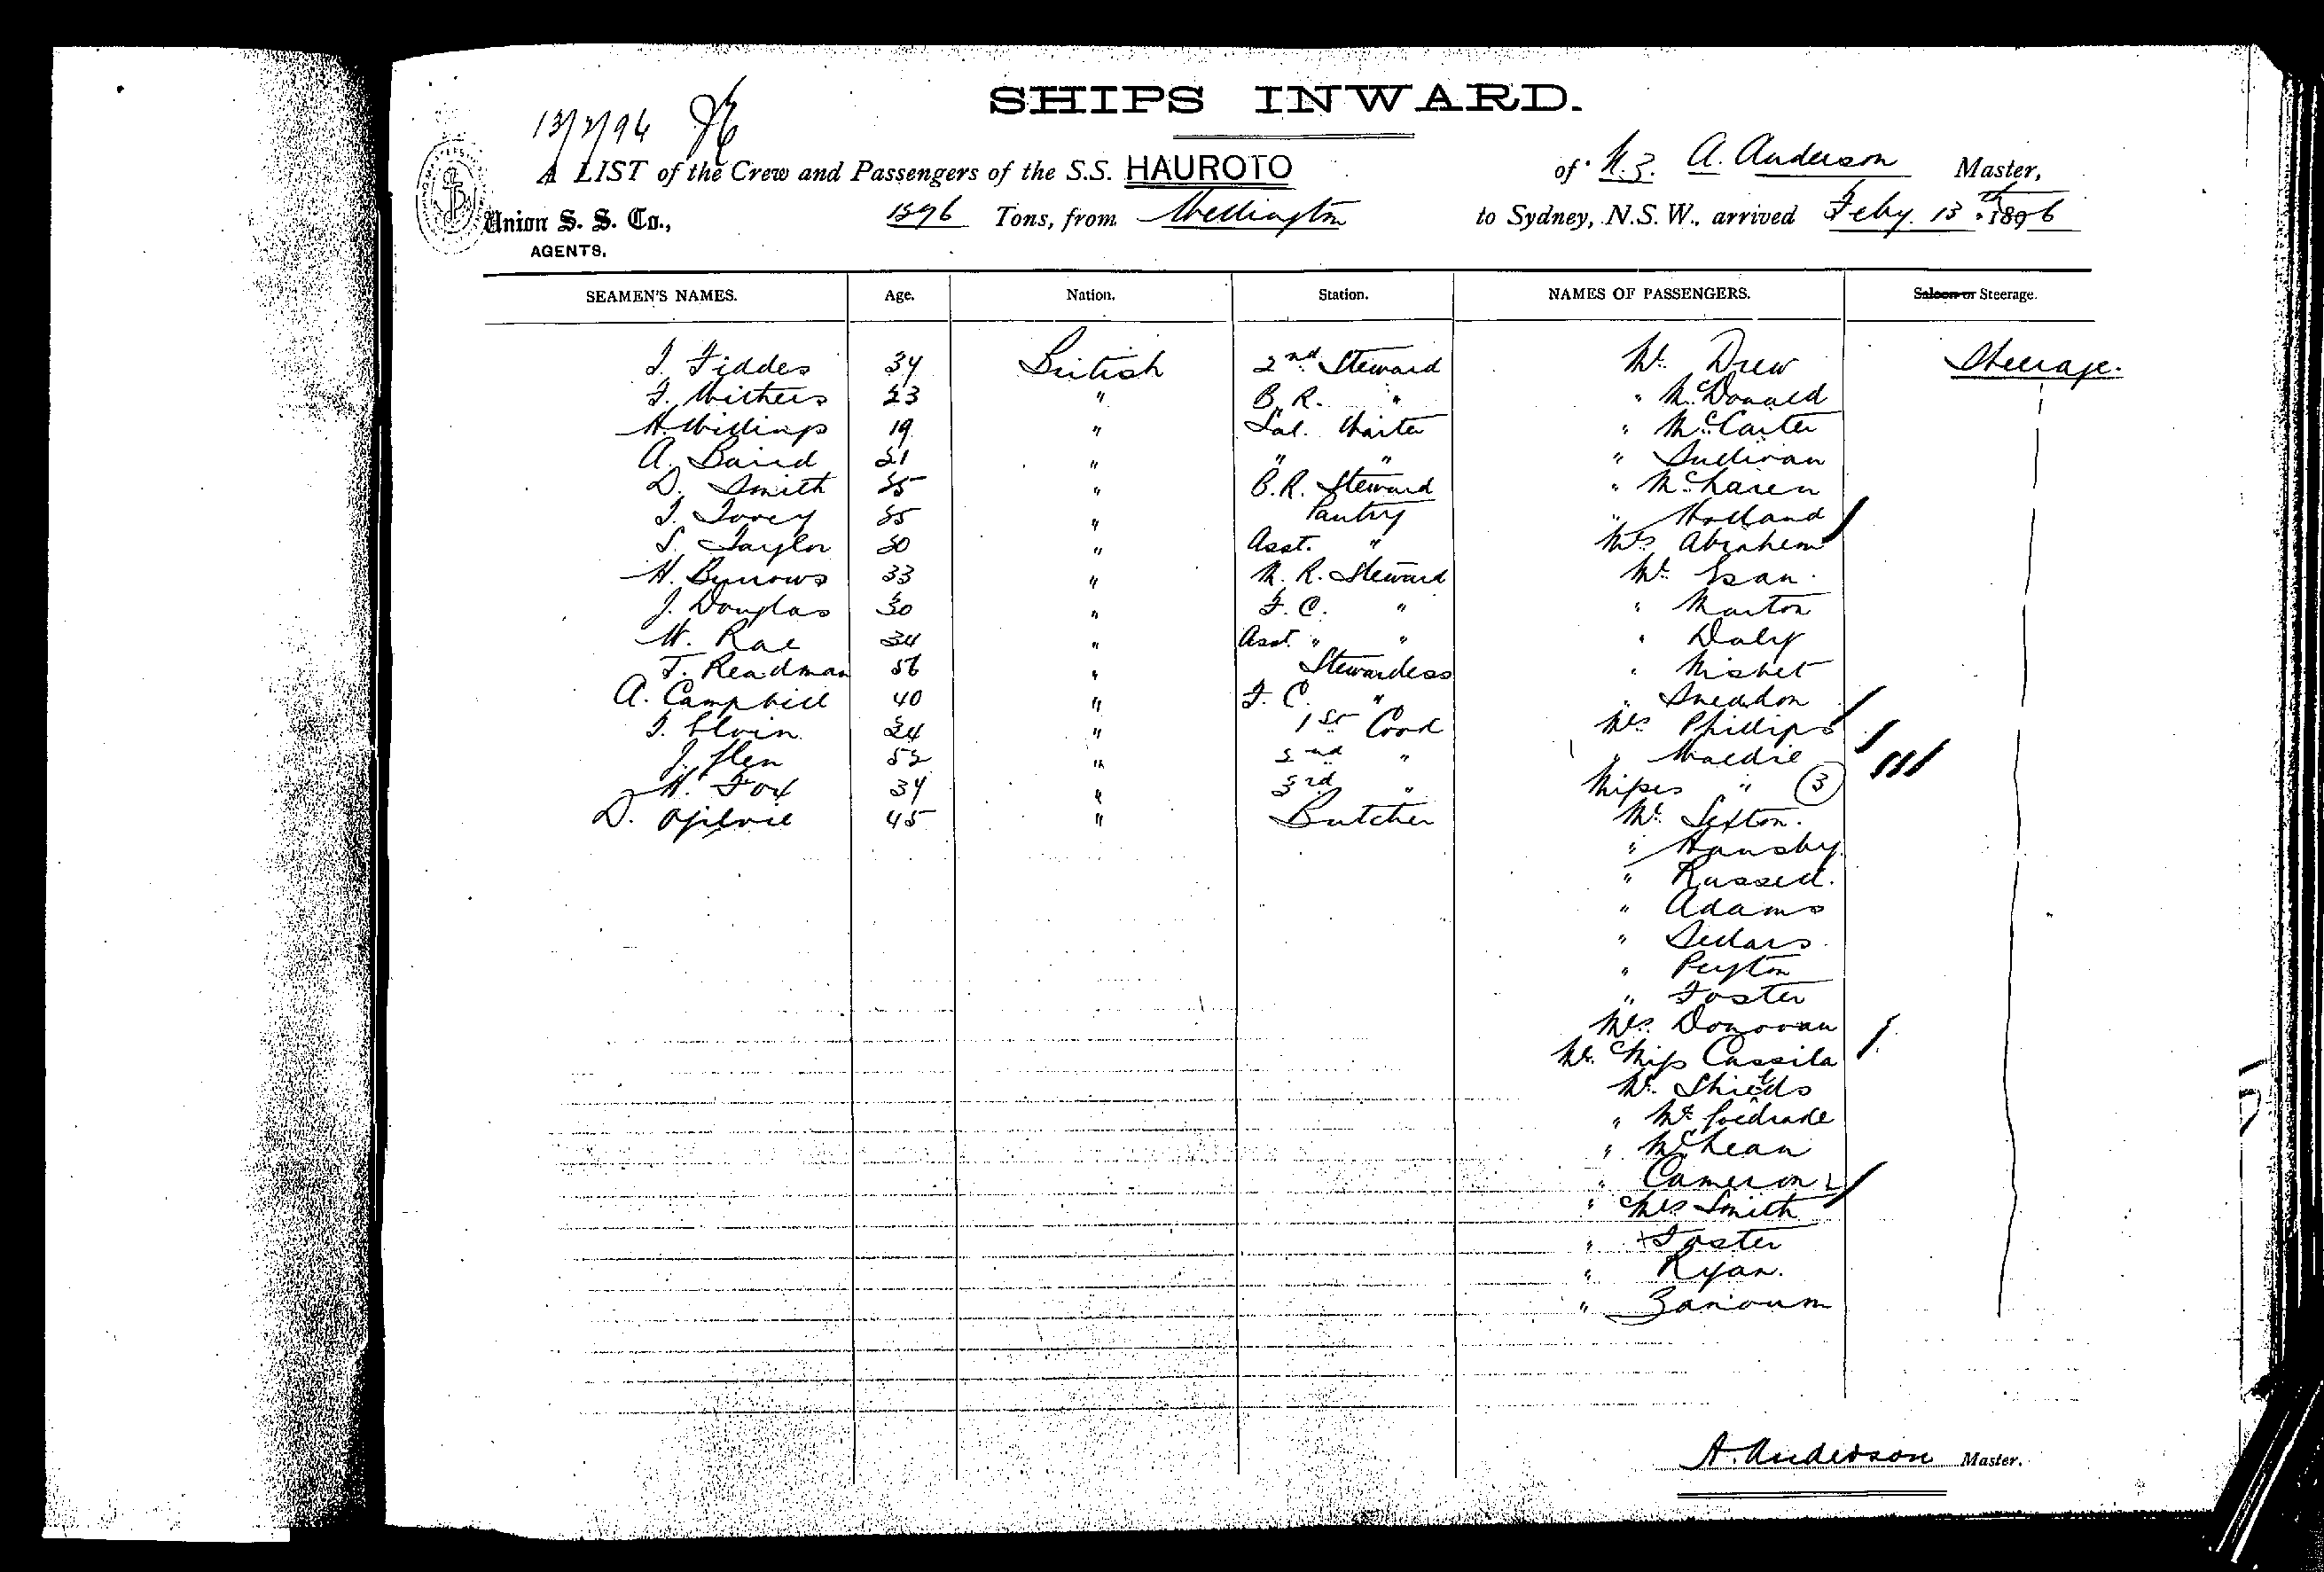 SHIPS INWARD.
13/2/96
A LIST of the Crew and Passengers of the S.S. HAUROTO of N.Z. A. Anderson Master,
Union S. S. Co., 1896 Tons, from Wellington to Sydney, N.S.W., arrived Feby. 13th 1896
AGENTS.
SEAMEN'S NAMES. Age. Nation. Station. NAMES OF PASSENGERS. Saloon or Steerage.
Fiddes 34 British 2nd Steward Mr. Drew Steerage.
Withers 23 " B.R. " " McDonald
H. 19 " Sal. Waiter " McCarter
A. Baird 21 " " " " Sullivan
D. Smith " B.R. Steward " McLaren
" Pantry " Holland
S. Taylor 30 " Asst. " Mrs Abrahem
H. Burrows 33 " Steward Mr.
J. Douglas 30 " F.C. " " Marton
W. Rae 34 " Asst. " " " Daly
Readman 56 " Stewardess " Nisbet
A. Campbell 40 " F.C. " " Sneddon
Elvin 24 " 1st Cook Mrs Phillips
J. " 2nd " "
H. Fox 34 " 3rd " Misses " (3)
D. Ogilvie 45 " Butcher Mr. Sexton.
" Hansby
" Russell.
" Adams
" Sellars
" Peyton
" Foster
Mrs Donovan
Mr. & Miss Cassila
Mr. Shields
"
" McLean
" Cameron
" & Mrs Smith
" Foster
" Ryan.
"
A. Anderson Master.